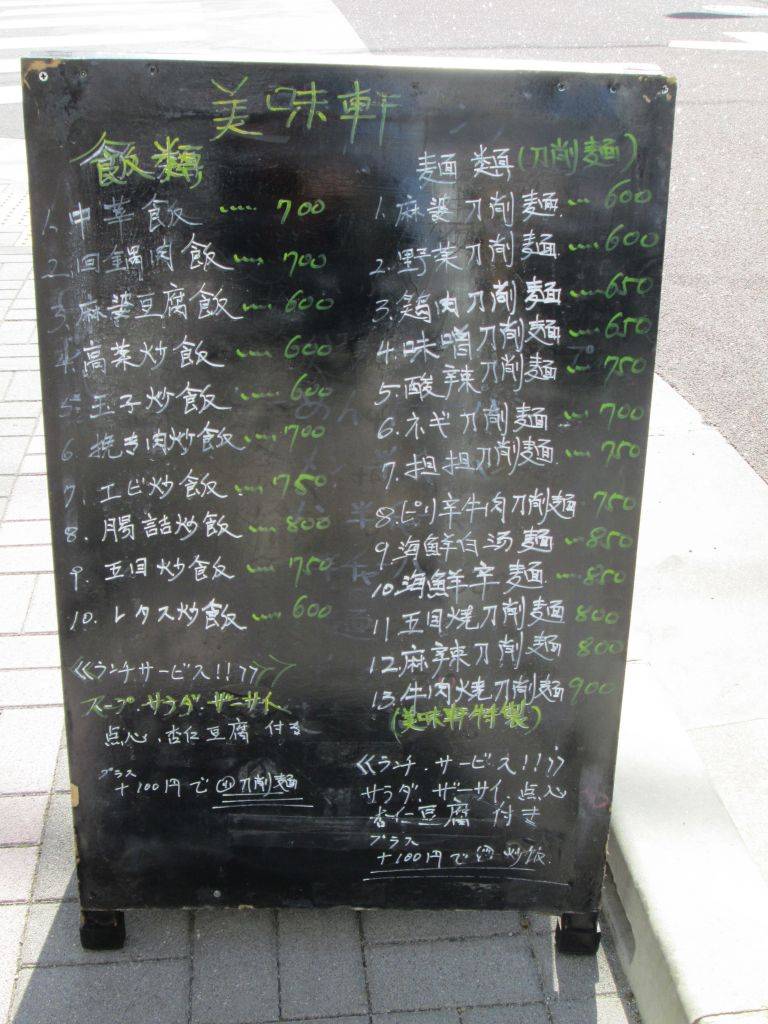 美味軒
飯類
1. 中華飯 ..... 700
2. 回鍋肉飯 ..... 700
3. 麻婆豆腐飯 ..... 600
4. 高菜炒飯 ..... 600
5. 玉子炒飯 ..... 600
6. 挽き肉炒飯 ..... 700
7. エビ炒飯 ..... 750
8. 腸詰炒飯 ..... 800
9. 五目炒飯 ..... 750
10. レタス炒飯 ..... 600
《ランチサービス!!》
スープ サラダ ザーサイ
点心、杏仁豆腐 付き
プラス
+100円で 刀削麺
麺類(刀削麺)
1. 麻婆刀削麺 ... 600
2. 野菜刀削麺 ... 600
3. 鶏肉刀削麺 ... 650
4. 味噌刀削麺 ... 650
5. 酸辣刀削麺 ... 750
6. ネギ刀削麺 ... 700
7. 担担刀削麺 ... 750
8. ピリ辛牛肉刀削麺 750
9. 海鮮白汤麺 ... 850
10. 海鮮辛麺 ... 850
11 五目焼刀削麺 800
12. 麻辣刀削麺 800
13. 牛肉焼刀削麺 900
(美味軒特製)
《ランチ.サービス!!》
サラダ.ザーサイ.点心
杏仁豆腐 付き
プラス
+100円で 炒飯.